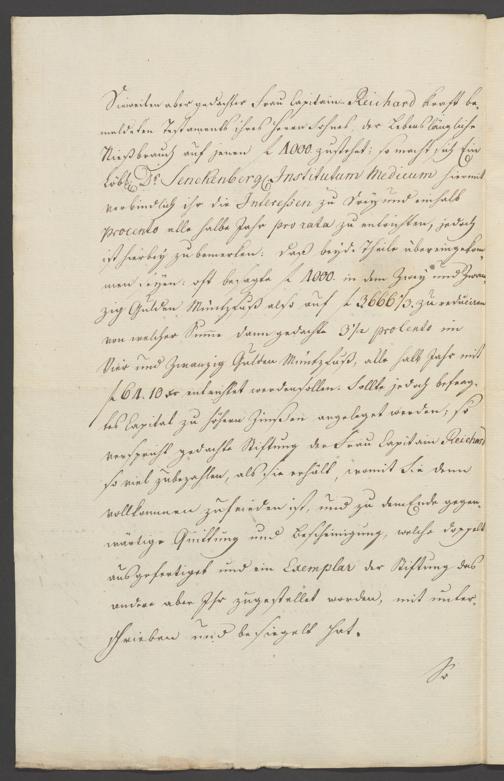 Dieweilen aber gedachter Frau Capitain Reichard kraft be-
meldeten Testaments ihres Herrn Sohnes, der Lebenslängliche
Nießbrauch auf jenen f 4000. zustehet; so macht sich Ein
Löbl. Dr Senckenberg. Institutum Medicum hiermit
verbindlich ihr die Interessen zu Drey und einhalb
procento alle halbe Jahr pro rata zu entrichten, jedoch
ist hierbey zu bemerken: daß beyde Theile übereingekom-
men seyen: oft besagte f 4000. in dem Zwey und Zwan-
zig Gulden Müntzfuß also auf f 3666 2/3. zu reduciren
von welcher Summe dann gedachte 3 1/2 procento im
Vier und Zwanzig Gulden Müntzfuß, alle halb Jahr mit
f 64. 10 xr entrichtet werden sollen. Sollte jedoch besag-
tes Capital zu höhern Zinßen angeleget werden, so
verspricht gedachte Stiftung der Frau Capitain Reichard
so viel zu bezahlen, als sie erhält, womit Sie denn
vollkommen zufrieden ist, und zu dem Ende gegen-
wärtige Quittung und Bescheinigung, welche doppelt
ausgefertiget und ein Exemplar der Stiftung das
andere aber Ihr zugestellet worden, mit unter-
schrieben und besiegelt hat.
So